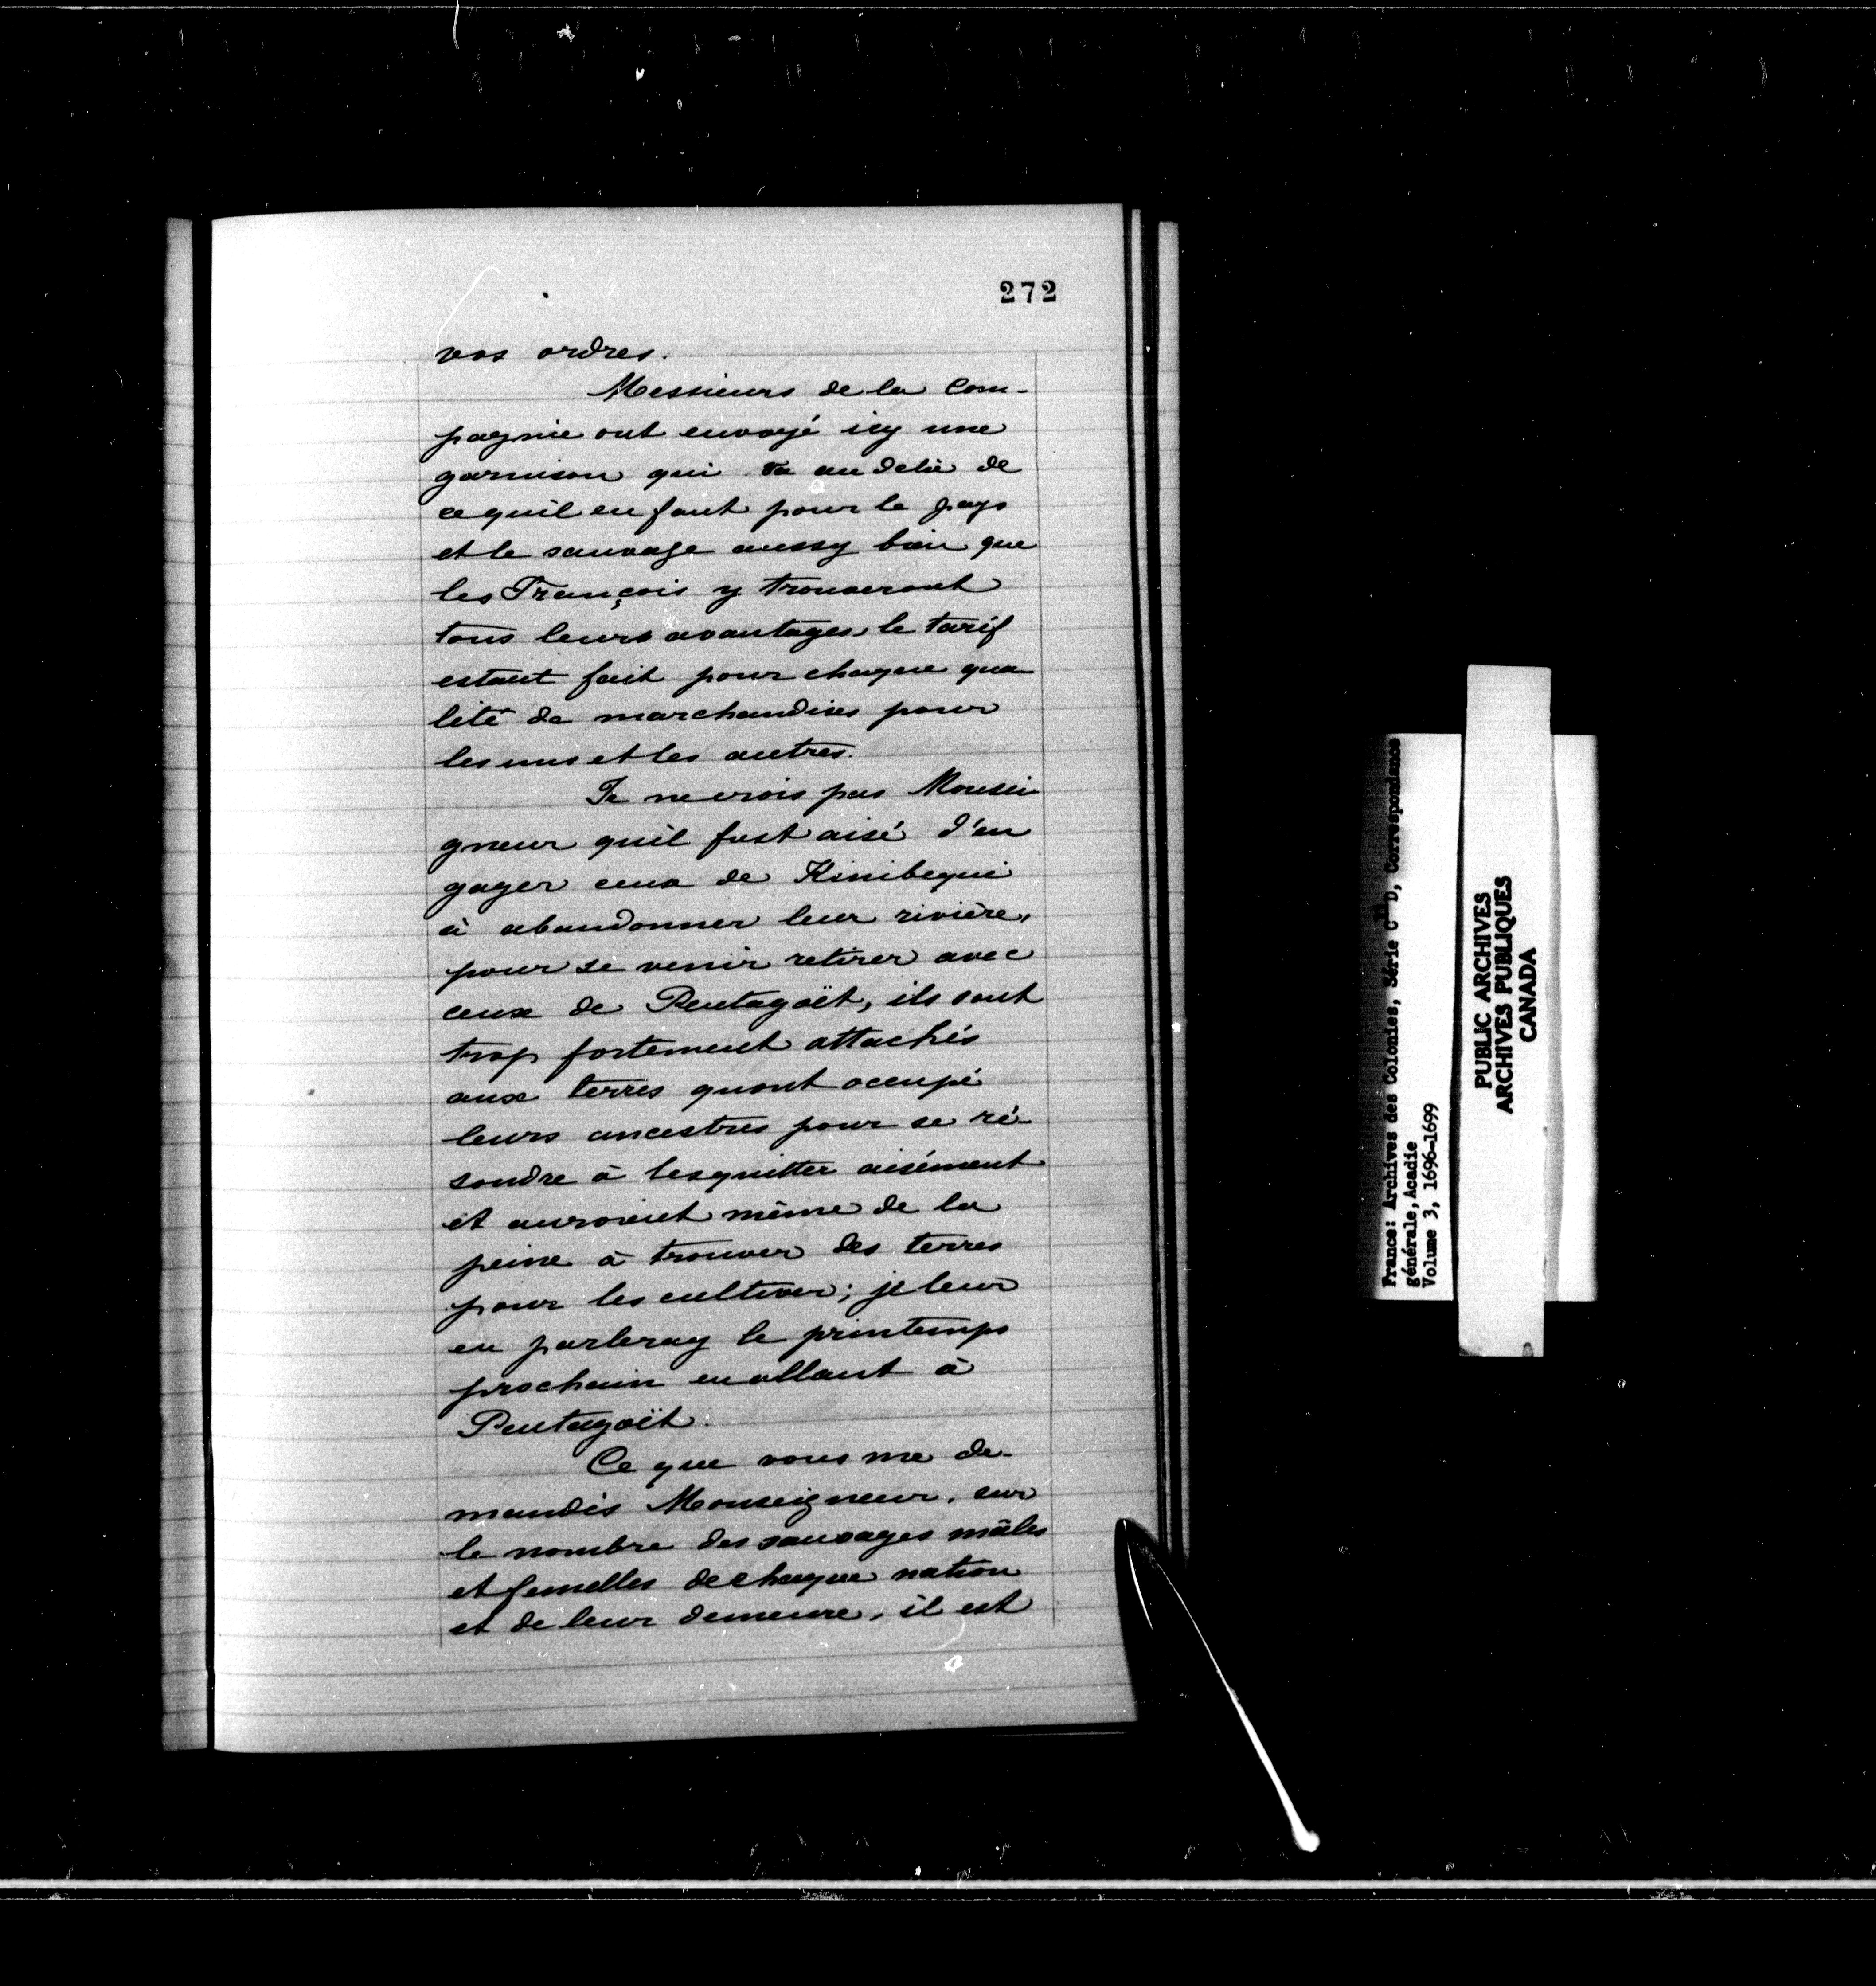 272
vos ordres.
Messieurs de la Com-
pagnie ont envoyé icy une
garnison qui va au delà de
ce quil en faut pour le pays
et le sauvage aussy bien que
les François y trouveront
tous leurs avantages, le tarif
estant fait pour chaque qua
lité de marchandises pour
les uns et les autres.
Je ne crois pas Monsei
gneur quil fust aisé d'en
gager ceux de Kinibequi
à abandonner leur rivière,
pour se venir retirer avec
ceux de Pentagoët, ils sont
trop fortement attachés
aux terres quont occupé
leurs ancestres pour se ré-
soudre à les quitter aisément
et auroient même de la
peine à trouver des terres
pour les cultiver; je leur
en parleray le printemps
prochain en allant à
Pentagoët.
Ce que vous me de-
mandés Monseigneur, sur
le nombre des sauvages mâles
et femelles de chaque nation
et de leur demeure, il est
France: Archives des Colonies, Série C11 D, Correspondance
générale, Acadie
Volume 3, 1696-1699
PUBLIC ARCHIVES
ARCHIVES PUBLIQUES
CANADA